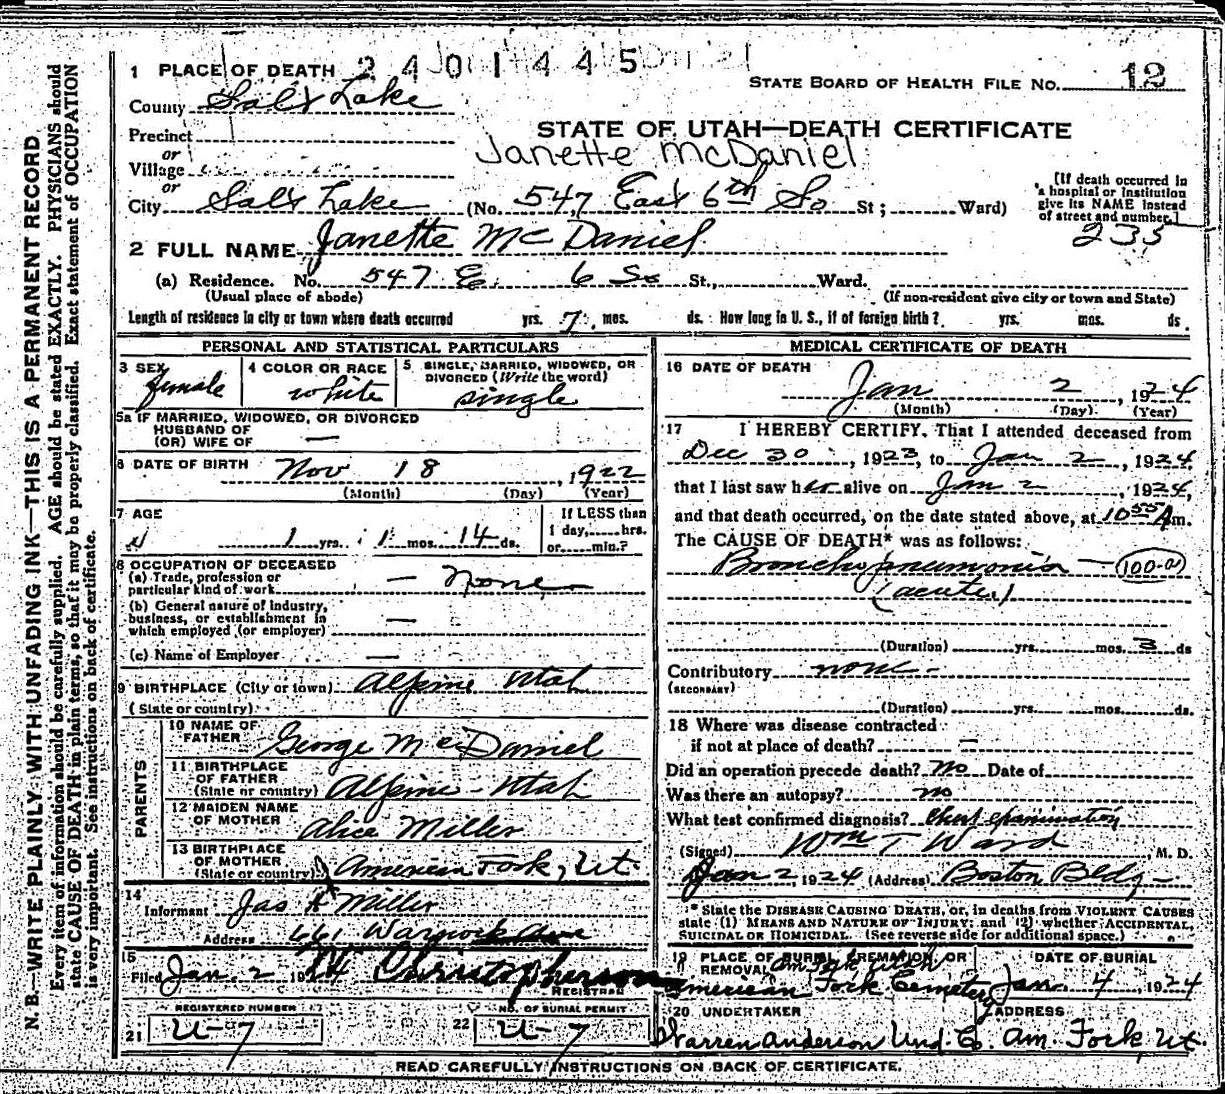 1 PLACE OF DEATH 2 4 0 1 4 4 5
STATE BOARD OF HEALTH FILE NO. 12
County Salt Lake
STATE OF UTAH—DEATH CERTIFICATE
Precinct
Janette McDaniel
or
Village
or
City Salt Lake (No. 547, East 6th So St; Ward)
(If death occurred in a hospital or institution give its NAME instead of street and number.)
235
2 FULL NAME Janette McDaniel
(a) Residence. No. 547 E. 6 So St., Ward.
(Usual place of abode) (If non-resident give city or town and State)
Length of residence in city or town where death occurred yrs. 7 mos. ds. How long in U. S., if of foreign birth? yrs. mos. ds.
PERSONAL AND STATISTICAL PARTICULARS
3 SEX female
4 COLOR OR RACE white
5 SINGLE, MARRIED, WIDOWED, OR DIVORCED (Write the word) single
5a IF MARRIED, WIDOWED, OR DIVORCED
HUSBAND OF
(OR) WIFE OF —
6 DATE OF BIRTH Nov 18, 1922
(Month) (Day) (Year)
7 AGE 1 yrs. 1 mos. 14 ds.
If LESS than 1 day, hrs. or min.?
8 OCCUPATION OF DECEASED
(a) Trade, profession or particular kind of work — none
(b) General nature of industry, business, or establishment in which employed (or employer) —
(c) Name of Employer —
9 BIRTHPLACE (City or town) Alpine Utah
(State or country)
PARENTS
10 NAME OF FATHER George McDaniel
11 BIRTHPLACE OF FATHER (State or country) Alpine - Utah
12 MAIDEN NAME OF MOTHER Alice Miller
13 BIRTHPLACE OF MOTHER (State or country) American Fork, Ut.
14 Informant Jas Miller
Address 661 Warnock Ave
15 Filed Jan. 2 1924 Christopherson
REGISTRAR
REGISTERED NUMBER
21 U-7
NO. OF BURIAL PERMIT
22 U-7
MEDICAL CERTIFICATE OF DEATH
16 DATE OF DEATH
Jan 2, 1924
(Month) (Day) (Year)
17 I HEREBY CERTIFY, That I attended deceased from
Dec 30, 1923, to Jan 2, 1924
that I last saw her alive on Jan 2, 1924,
and that death occurred, on the date stated above, at 10 55 A m.
The CAUSE OF DEATH* was as follows:
Bronchopneumonia —
(acute)
(Duration) yrs. mos. 3 ds
Contributory none -
(SECONDARY)
(Duration) yrs. mos. ds.
18 Where was disease contracted
if not at place of death? —
Did an operation precede death? No Date of
Was there an autopsy? no
What test confirmed diagnosis? Chest examination
(Signed) Wm T Ward, M. D.
Jan 2, 1924 (Address) Boston Bldg -
* State the DISEASE CAUSING DEATH, or, in deaths from VIOLENT CAUSES
state (1) MEANS AND NATURE OF INJURY; and (2) whether ACCIDENTAL,
SUICIDAL OR HOMICIDAL. (See reverse side for additional space.)
19 PLACE OF BURIAL, CREMATION, OR REMOVAL
American Fork Cemetery
DATE OF BURIAL
Jan. 4, 1924
20 UNDERTAKER ADDRESS
Warren Anderson Und. Co. Am. Fork, Ut.
READ CAREFULLY INSTRUCTIONS ON BACK OF CERTIFICATE.
N. B.—WRITE PLAINLY, WITH UNFADING INK—THIS IS A PERMANENT RECORD
Every item of information should be carefully supplied. AGE should be stated EXACTLY. PHYSICIANS should
state CAUSE OF DEATH in plain terms, so that it may be properly classified. Exact statement of OCCUPATION
is very important. See instructions on back of certificate.